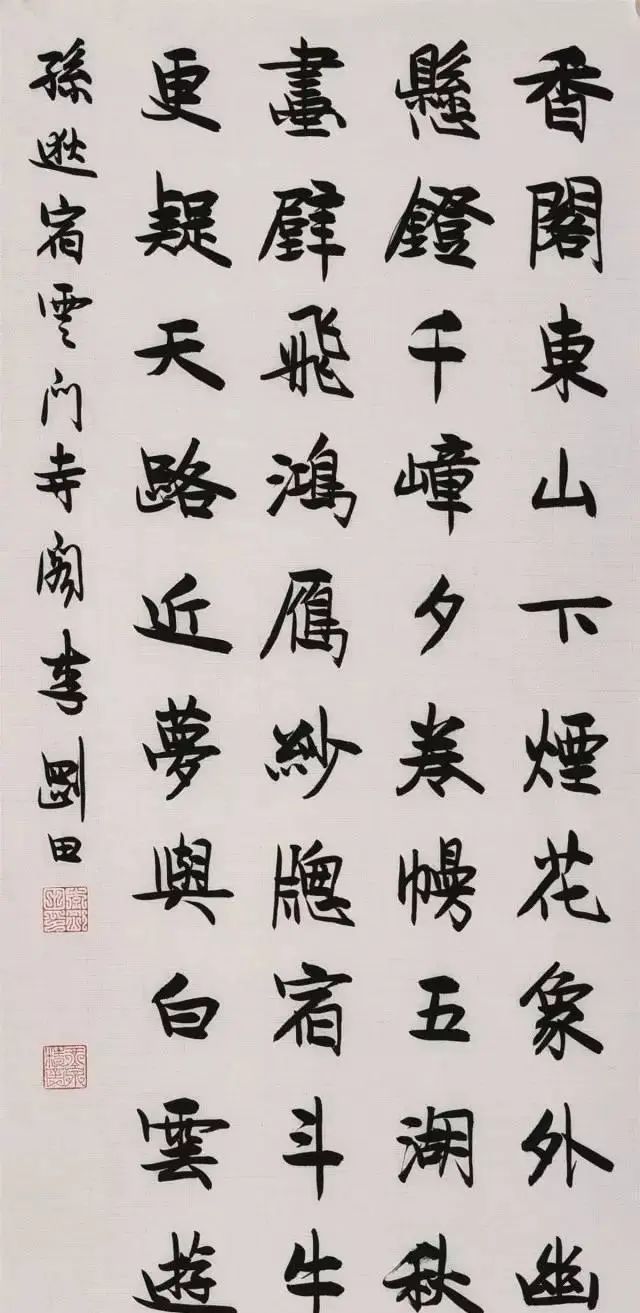 香閣東山下煙花象外幽
懸鐙千嶂夕卷幔五湖秋
畫壁飛鴻雁紗牕宿斗牛
更疑天路近夢與白雲遊
孫逖宿雲门寺阁李剛田